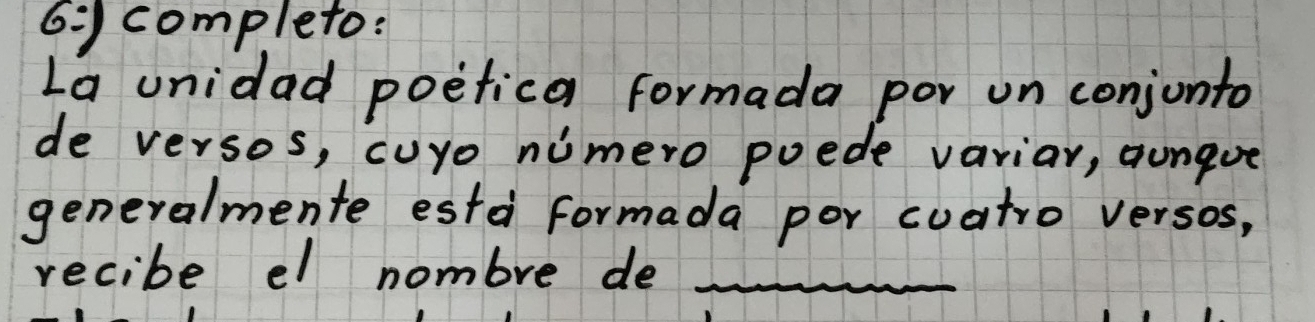 6:) completo:
La unidad poética formada por un conjunto
de versos, cuyo número puede variar, aunque
generalmente está formada por cuatro versos,
recibe el nombre de ________